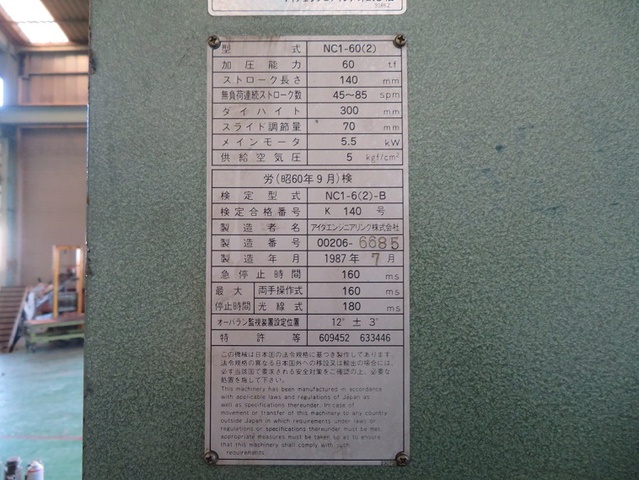 型式 NC1-60(2)
加圧能力 60 tf
ストローク長さ 140 mm
無負荷連続ストローク数 45〜85 spm
ダイハイト 300 mm
スライド調節量 70 mm
メインモータ 5.5 kW
供給空気圧 5 kgf/cm²
労(昭60年9月)検
検定型式 NC1-6(2)-B
検定合格番号 K 140 号
製造者名 アイダエンジニアリング株式会社
製造番号 00206-6685
製造年月 1987年7月
急停止時間 160 ms
最大停止時間 両手操作式 160 ms
光線式 180 ms
オーバラン監視装置設定位置 12° ± 3°
特許等 609452 633446
この機械は日本国の法令規格に基づき製作してあります。
法令規格の異なる日本国外への移設又は輸出の場合には、
必ず当該国で要求される安全対策をご確認の上、必要な
処置を施して下さい。
This machinery has been manufactured in accordance
with applicable laws and regulations of Japan as
well as specifications thereunder. In case of
movement or transfer of this machinery to any country
outside Japan in which requirements under laws or
regulations or specifications thereunder must be met,
appropriate measures must be taken so as to ensure
that this machinery shall comply with such
requirements.